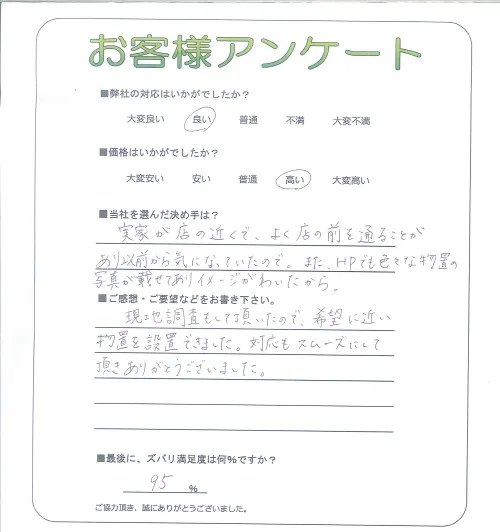 お客様アンケート
■弊社の対応はいかがでしたか？
大変良い 良い 普通 不満 大変不満
■価格はいかがでしたか？
大変安い 安い 普通 高い 大変高い
■当社を選んだ決め手は？
実家が店の近くで、よく店の前を通ることが
あり以前から気になっていたので。また、HPでも色々な物置の
写真が載せてありイメージがわいたから。
■ご感想・ご要望などをお書き下さい。
現地調査もして頂いたので、希望に近い
物置を設置できました。対応もスムーズにして
頂きありがとうございました。
■最後に、ズバリ満足度は何%ですか？
95 %
ご協力頂き、誠にありがとうございました。